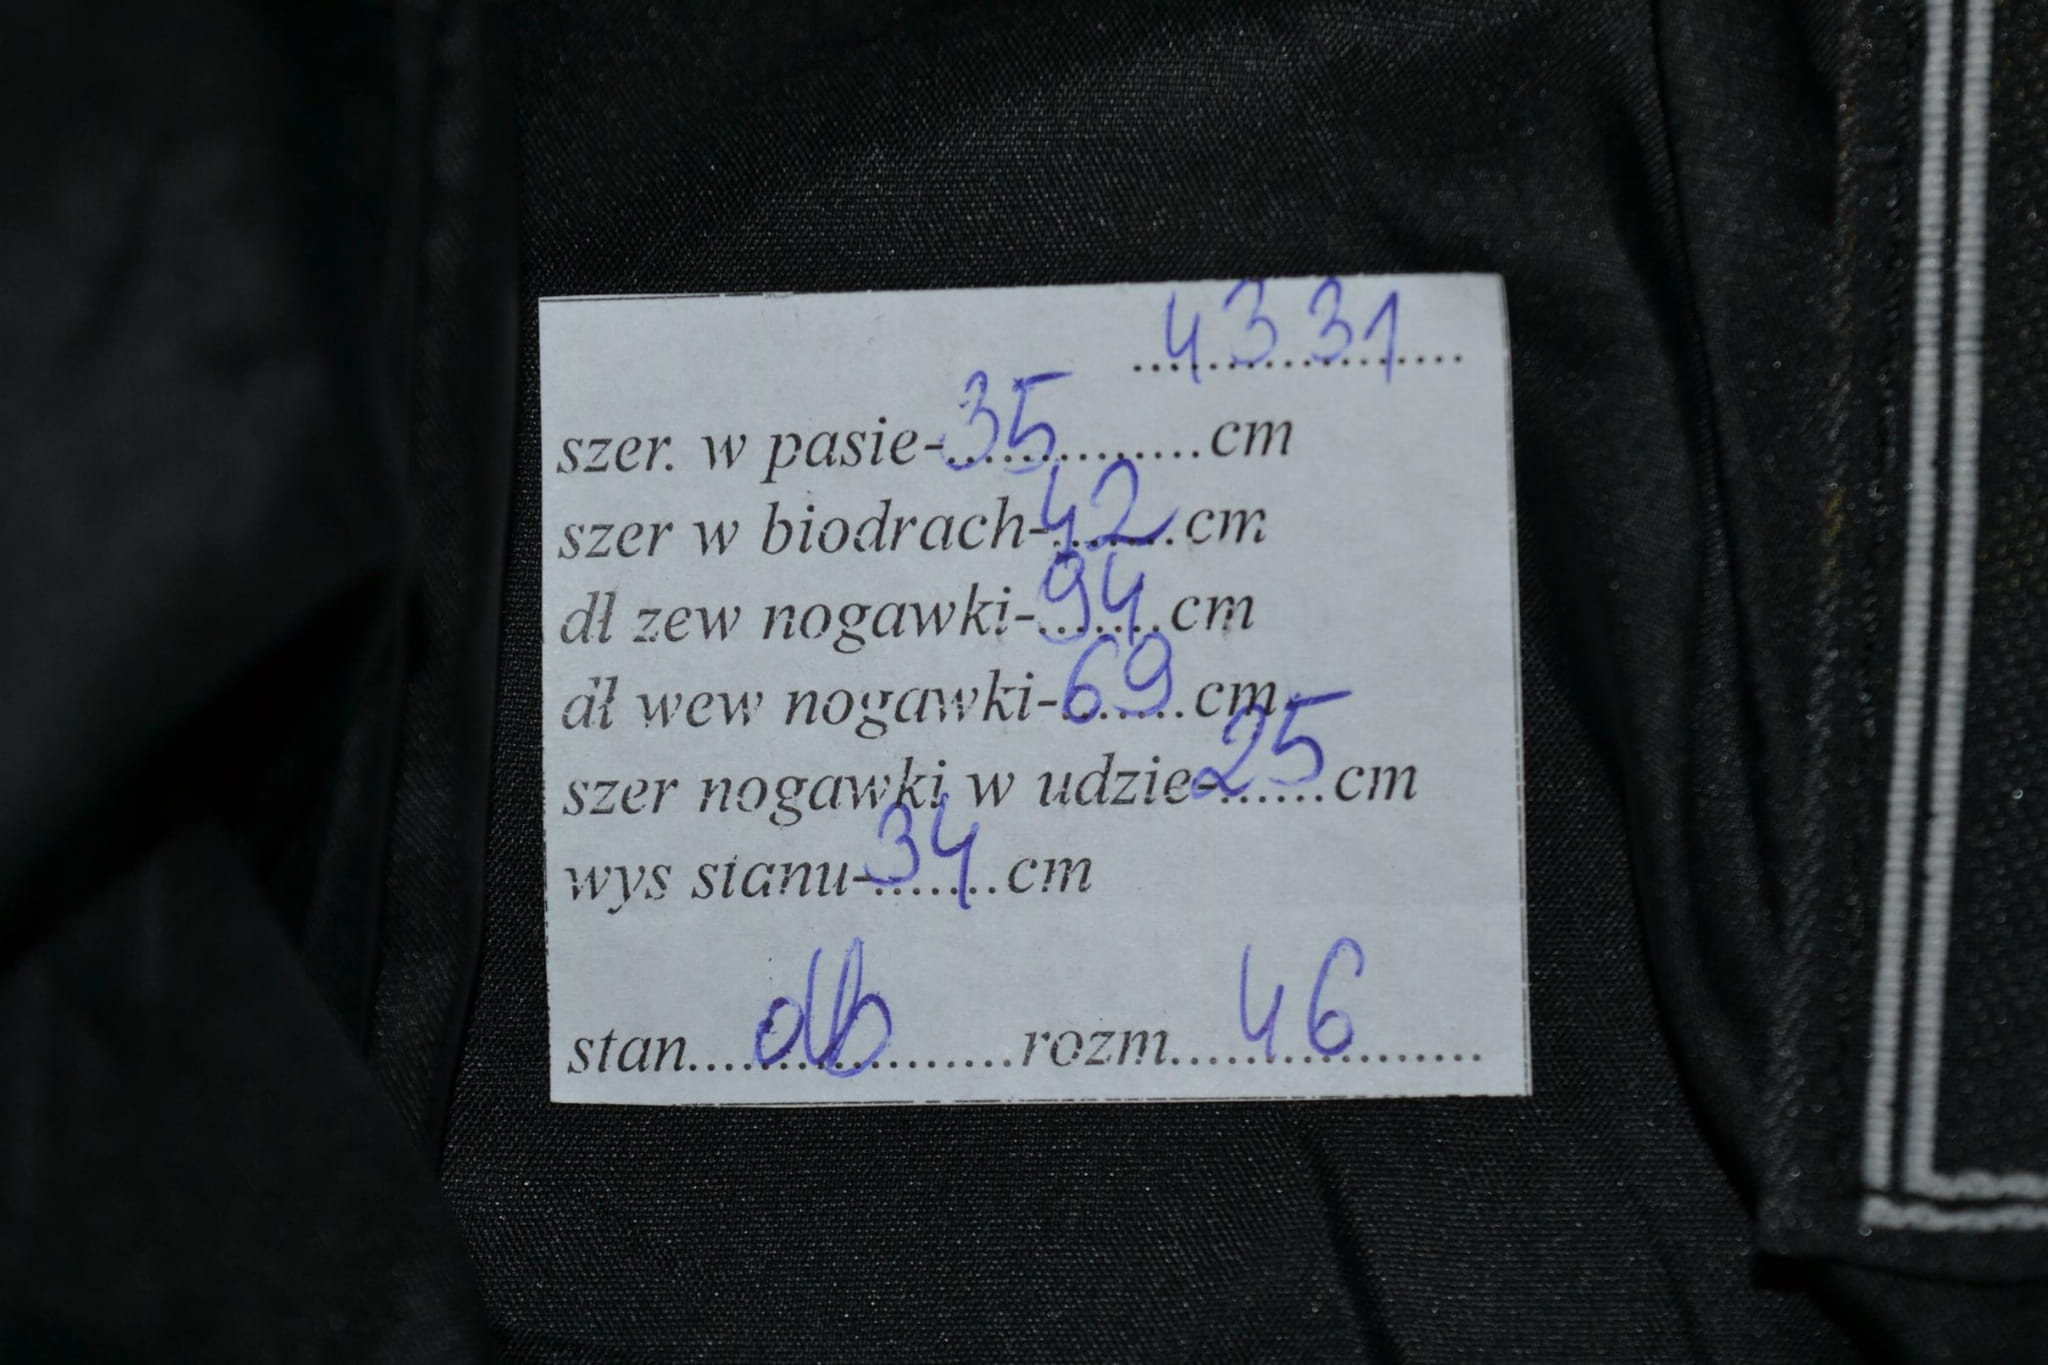 4331
szer. w pasie-35..............cm
szer w biodrach-42.......cm
dł zew nogawki-94.......cm
dł wew nogawki-69.......cm
szer nogawki w udzie-25......cm
wys stanu-34.......cm
stan....db..................rozm....46.................